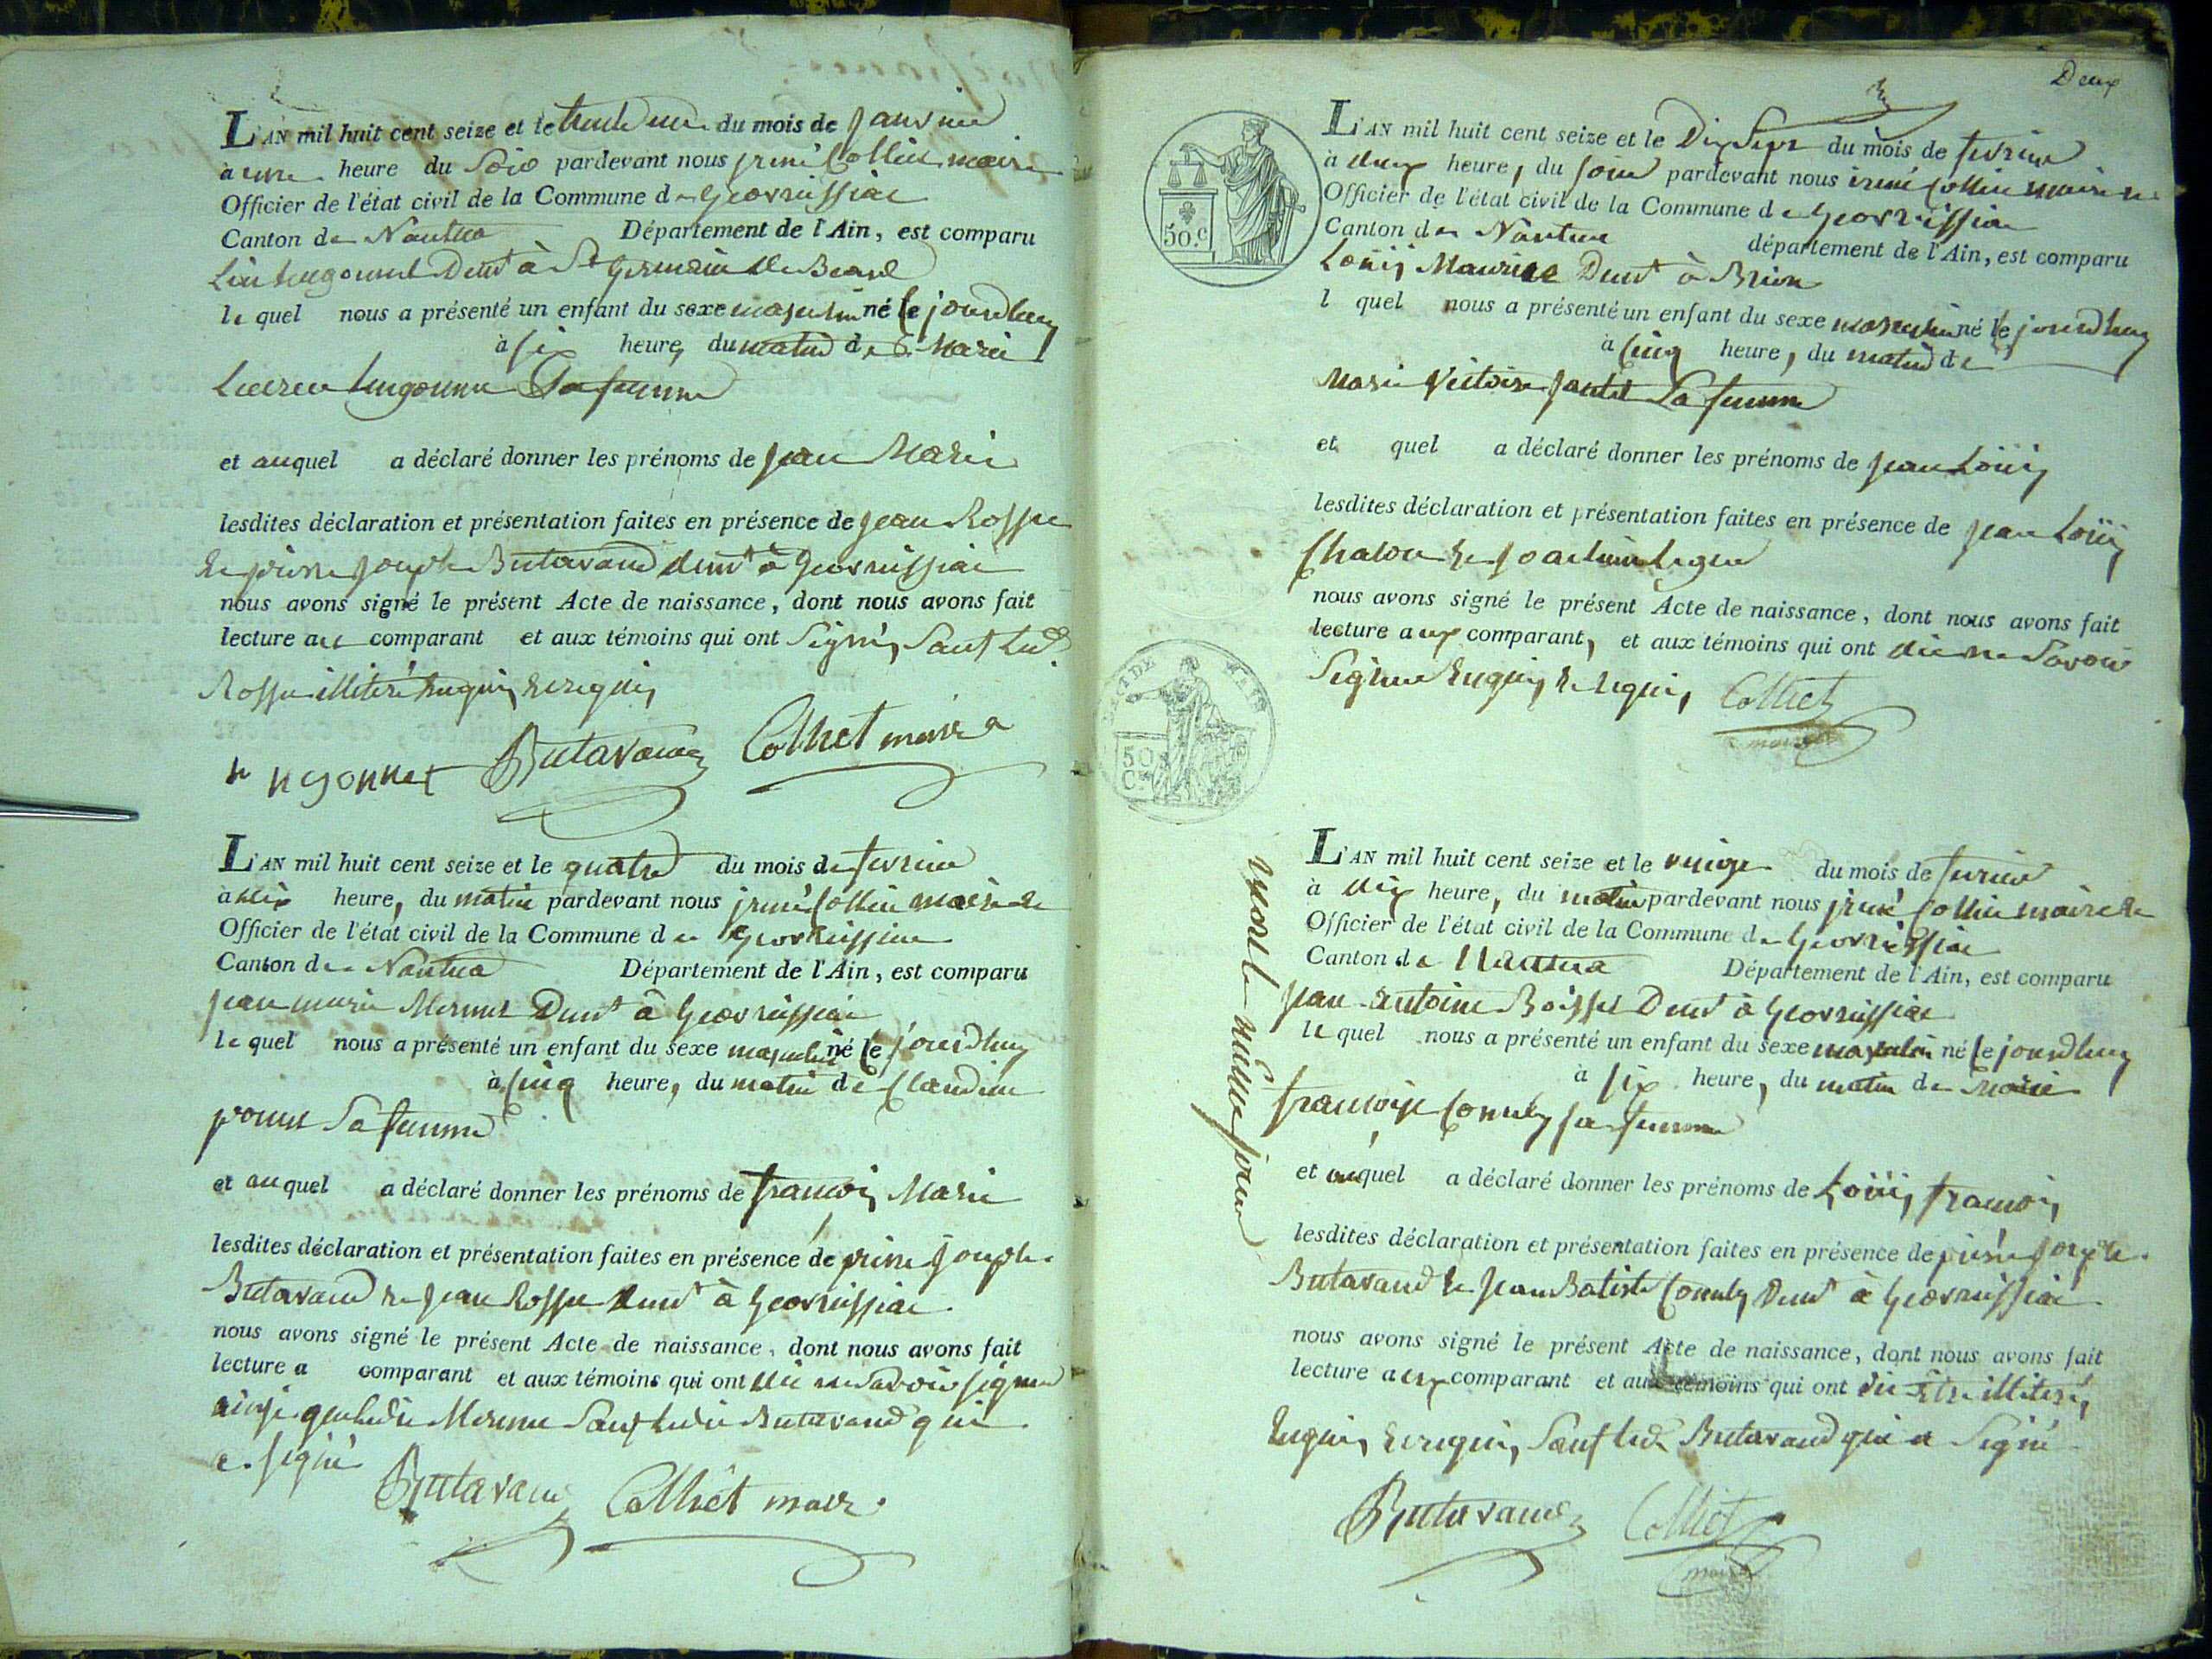 L'AN mil huit cent seize et le trente un du mois de janvier
a une heure du Soir pardevant nous jrené Colliet maire
Officier de l'état civil de la Commune de Geovreissiat
Canton de Nantua Département de l'Ain, est comparu
demt à St Germain de Beard
le quel nous a présenté un enfant du sexe masculin né le jourdhuy
à six heure, du matin de Marie
Sa femme
et auquel a déclaré donner les prénoms de jean Marie
lesdites déclaration et présentation faites en présence de jean Rosset
et pierre joseph Butavand demt à Geovreissiat
nous avons signé le présent Acte de naissance, dont nous avons fait
lecture au comparant et aux témoins qui ont Signés Sauf led
Rosset illiteré enquis et requis
Butavand Colliet maire
L'AN mil huit cent seize et le quatre du mois de fevrier
a dix heure, du matin pardevant nous jrené Colliet maire et
Officier de l'état civil de la Commune de Geovreissiat
Canton de Nantua Département de l'Ain, est comparu
jean marie Mermet Demt à Geovreissiat
le quel nous a présenté un enfant du sexe masculin né le jourdhuy
à cinq heure, du matin de Claudine
poncet Sa femme
et auquel a déclaré donner les prénoms de francois Marie
lesdites déclaration et présentation faites en présence de pierre joseph
Butavand et jean Rosset demt à Geovreissiat
nous avons signé le présent Acte de naissance, dont nous avons fait
lecture a comparant et aux témoins qui ont dit ne Savoir signer
ainsi que ledit Mermet Sauf ledit Butavand qui
a signé
Butavand Colliet maire
Deux
50.c
L'AN mil huit cent seize et le Dix Sept du mois de fevrier
à deux heure, du soir pardevant nous irené Colliet maire et
Officier de l'état civil de la Commune de Geovreissiat
Canton de Nantua département de l'Ain, est comparu
Loüis Maurice Demt à Brion
l quel nous a présenté un enfant du sexe masculin né le jourdhuy
à cinq heure, du matin de
Marie Victoire jantet Sa femme
et quel a déclaré donner les prénoms de jean Loüis
lesdites déclaration et présentation faites en présence de jean Loüis
Chalon et joachim
nous avons signé le présent Acte de naissance, dont nous avons fait
lecture aux comparant, et aux témoins qui ont dit ne Savoir
Signer enquis et requis Colliet
maire
50
C.
L'AN mil huit cent seize et le vingt du mois de fevrier
à dix heure, du matin pardevant nous jrené Colliet maire et
Officier de l'état civil de la Commune de Geovreissiat
Canton de Nantua Département de l'Ain, est comparu
jean antoine Boisset Demt à Geovreissiat
le quel nous a présenté un enfant du sexe masculin né le jourdhuy
à six heure, du matin de Marie
francoise Comte sa femme
et auquel a déclaré donner les prénoms de Loüis francois
lesdites déclaration et présentation faites en présence de pierre joseph
Butavand et jean Batiste Demt à Geovreissiat
nous avons signé le présent Acte de naissance, dont nous avons fait
lecture aux comparant et aux témoins qui ont dit être illiterés
enquis et requis, Sauf led Butavand qui a Signé
Butavand Colliet
maire
mort le même jour